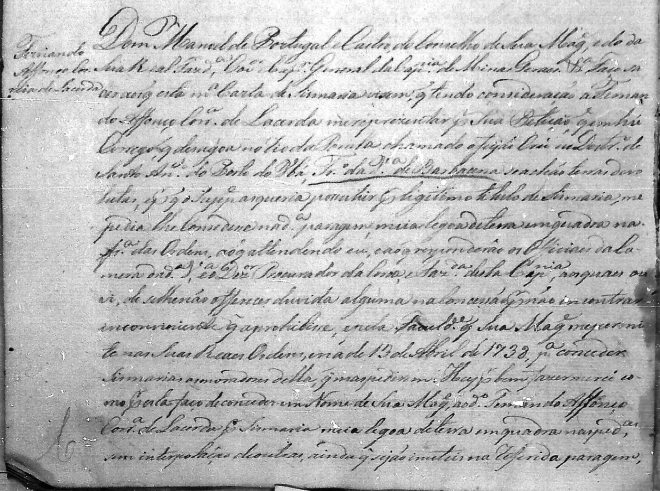 Fernando
Affonço Cor.
reia de Lacerda
Dom M.el de Portugal e Castro, do Conselho de Sua Mag.e, e do da
Sua Real Faz.da, Gov.or e Cap.m General da Cap.nia de Minas Geraes. Faço sa
ber aos q esta m.a Carta de Sismaria virem, q tendo consideração a Fernan
do Affonço Corr.a de Lacerda me reprezentar p Sua Petição, q em hu
Corrego, q dezagoa no rio da Pomba chamado o
Santo An.to do Porto do Ubá, Fr.a da V.a de Barbacena se achão terras devo
lutas, e p q o Sup.e as queria possuir p legitimo titulo de Sismaria, me
pedia lhe Concedese na d.a paragem meia legoa de terra em quadra na
fr.a das Ordens, ao q attendendo eu, e ao q responderão os Officiaes da Ca
mera da d.a V.a, e o D.or Procurador da Coroa, e Faz.da desta Cap.nia, aos quaes ou
vi, de se lhe não offrecer duvida alguma na Concessão, p não encontrar
inconveniente q a prohibise, e pela faculd.e q Sua Mag.e me permi
te nas Suas Reaes Ordens, e na de 13 de Abril de 1738, p.a conceder
Sismarias aos moradores della, q mas pedirem. Hey p bem fazer mercê co
mo p esta faço de conceder em Nome de Sua Mag.e, ao d.o Fernando Affonço
Corr.a de Lacerda p Sismaria meia legoa de terra em quadra na pedi.da,
sem interpolação de outras, ainda q sejão inuteis na referida paragem,